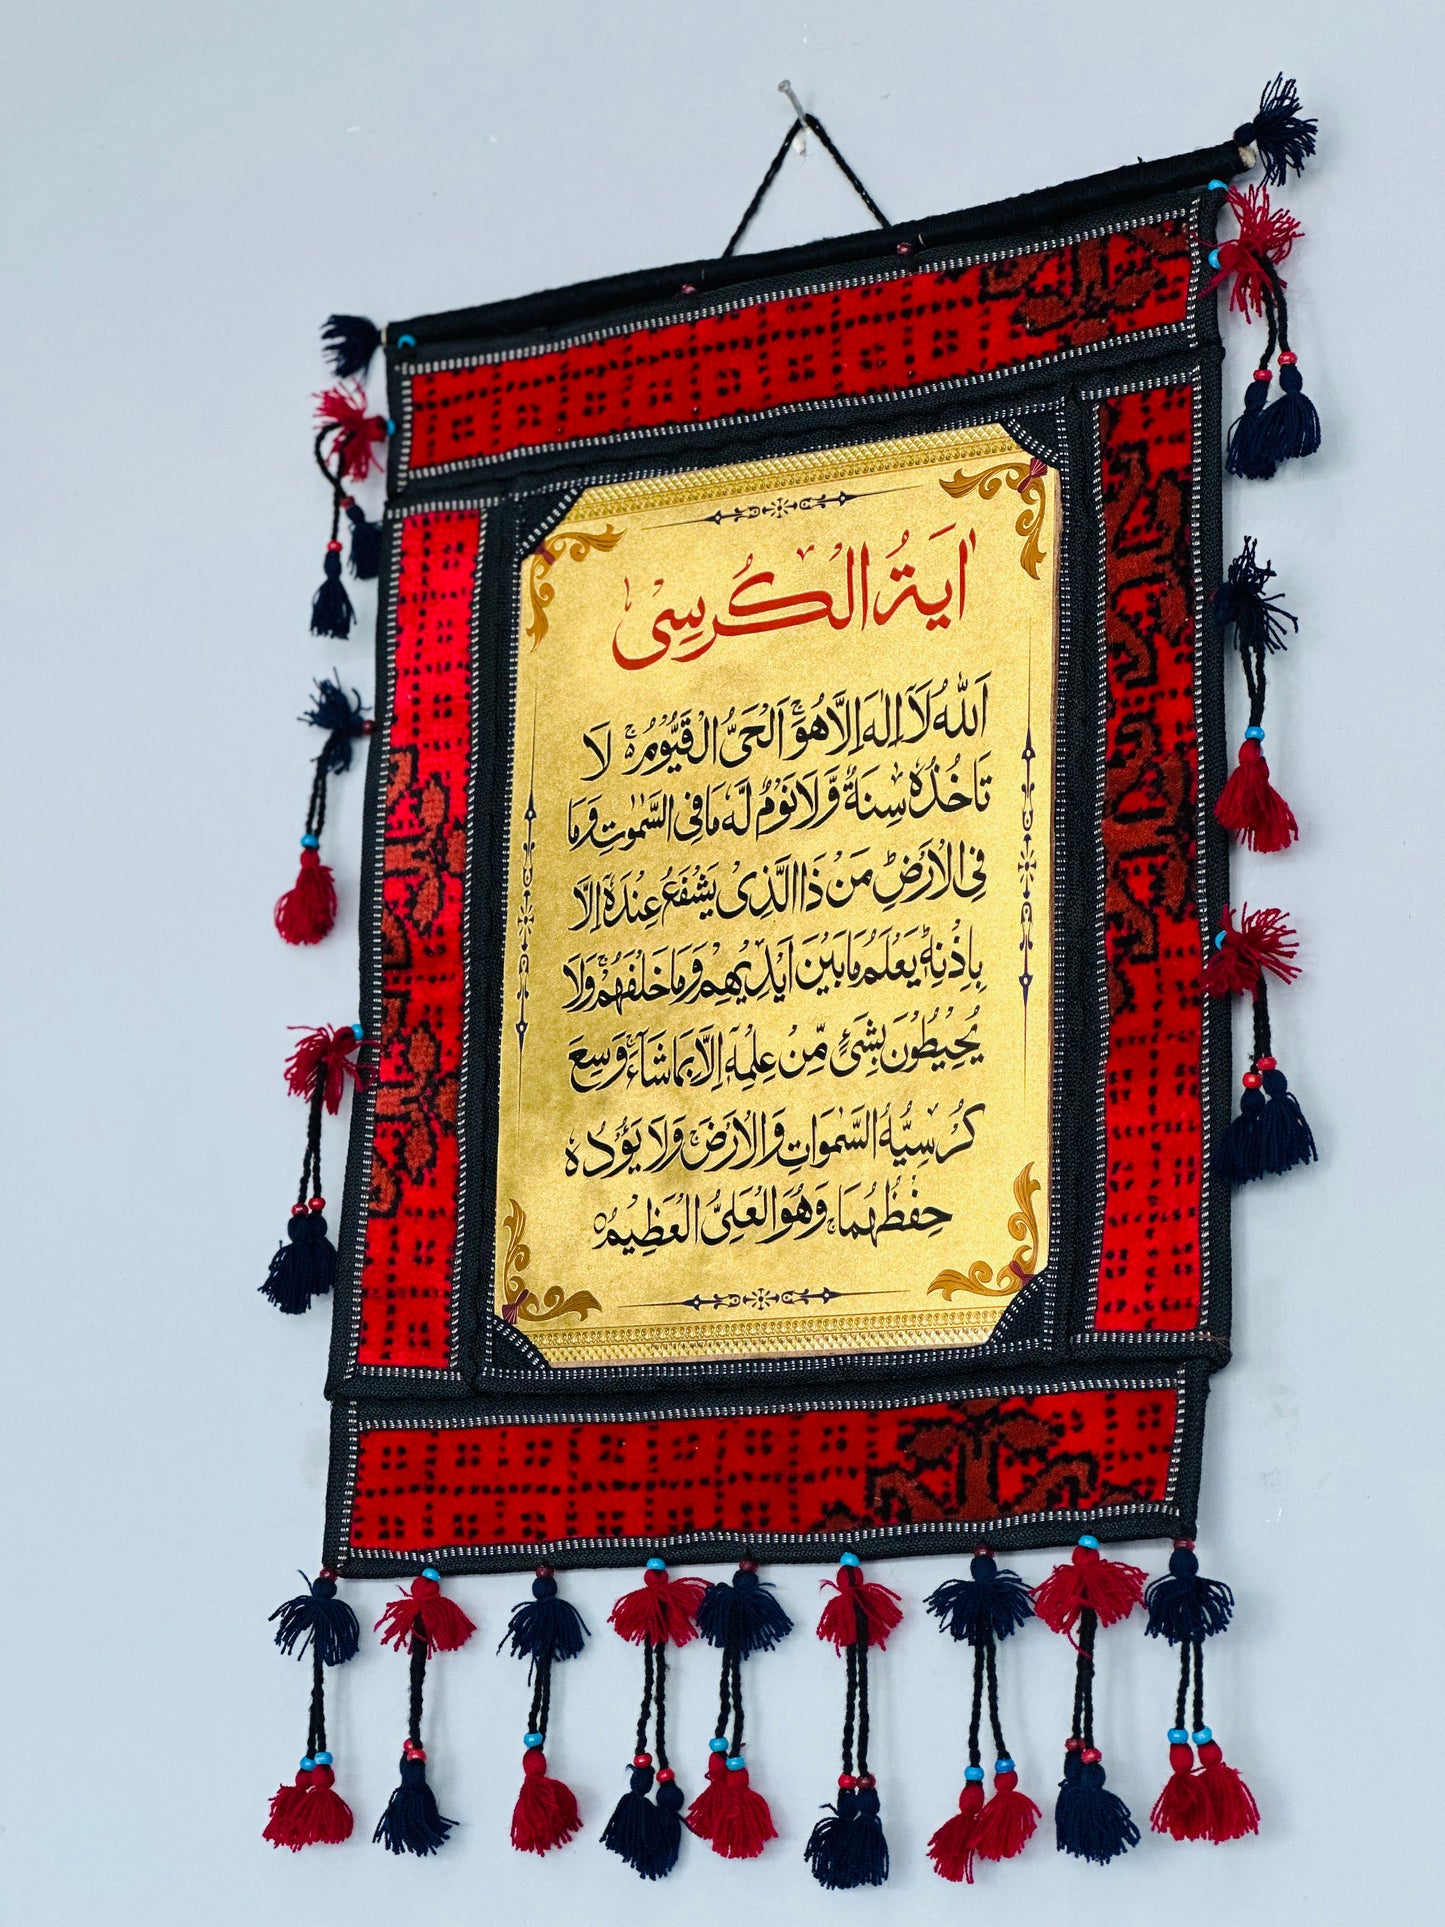 اٰيَةُ الْكُرْسِىْ
اَللّٰهُ لَآ اِلٰهَ اِلَّا هُوَۚ اَلْحَىُّ الْقَيُّوْمُ ەۚ لَا
تَاْخُذُهٗ سِنَةٌ وَّلَا نَوْمٌ لَهٗ مَا فِى السَّمٰوٰتِ وَمَا
فِى الْاَرْضِؕ مَنْ ذَا الَّذِىْ يَشْفَعُ عِنْدَهٗٓ اِلَّا
بِاِذْنِهٖؕ يَعْلَمُ مَا بَيْنَ اَيْدِيْهِمْ وَمَا خَلْفَهُمْۚ وَلَا
يُحِيْطُوْنَ بِشَىْءٍ مِّنْ عِلْمِهٖٓ اِلَّا بِمَا شَآءَۚ وَسِعَ
كُرْسِيُّهُ السَّمٰوَاتِ وَالْاَرْضَۚ وَلَا يَؤُدُهٗ
حِفْظُهُمَاۚ وَهُوَ الْعَلِىُّ الْعَظِيْمُ○